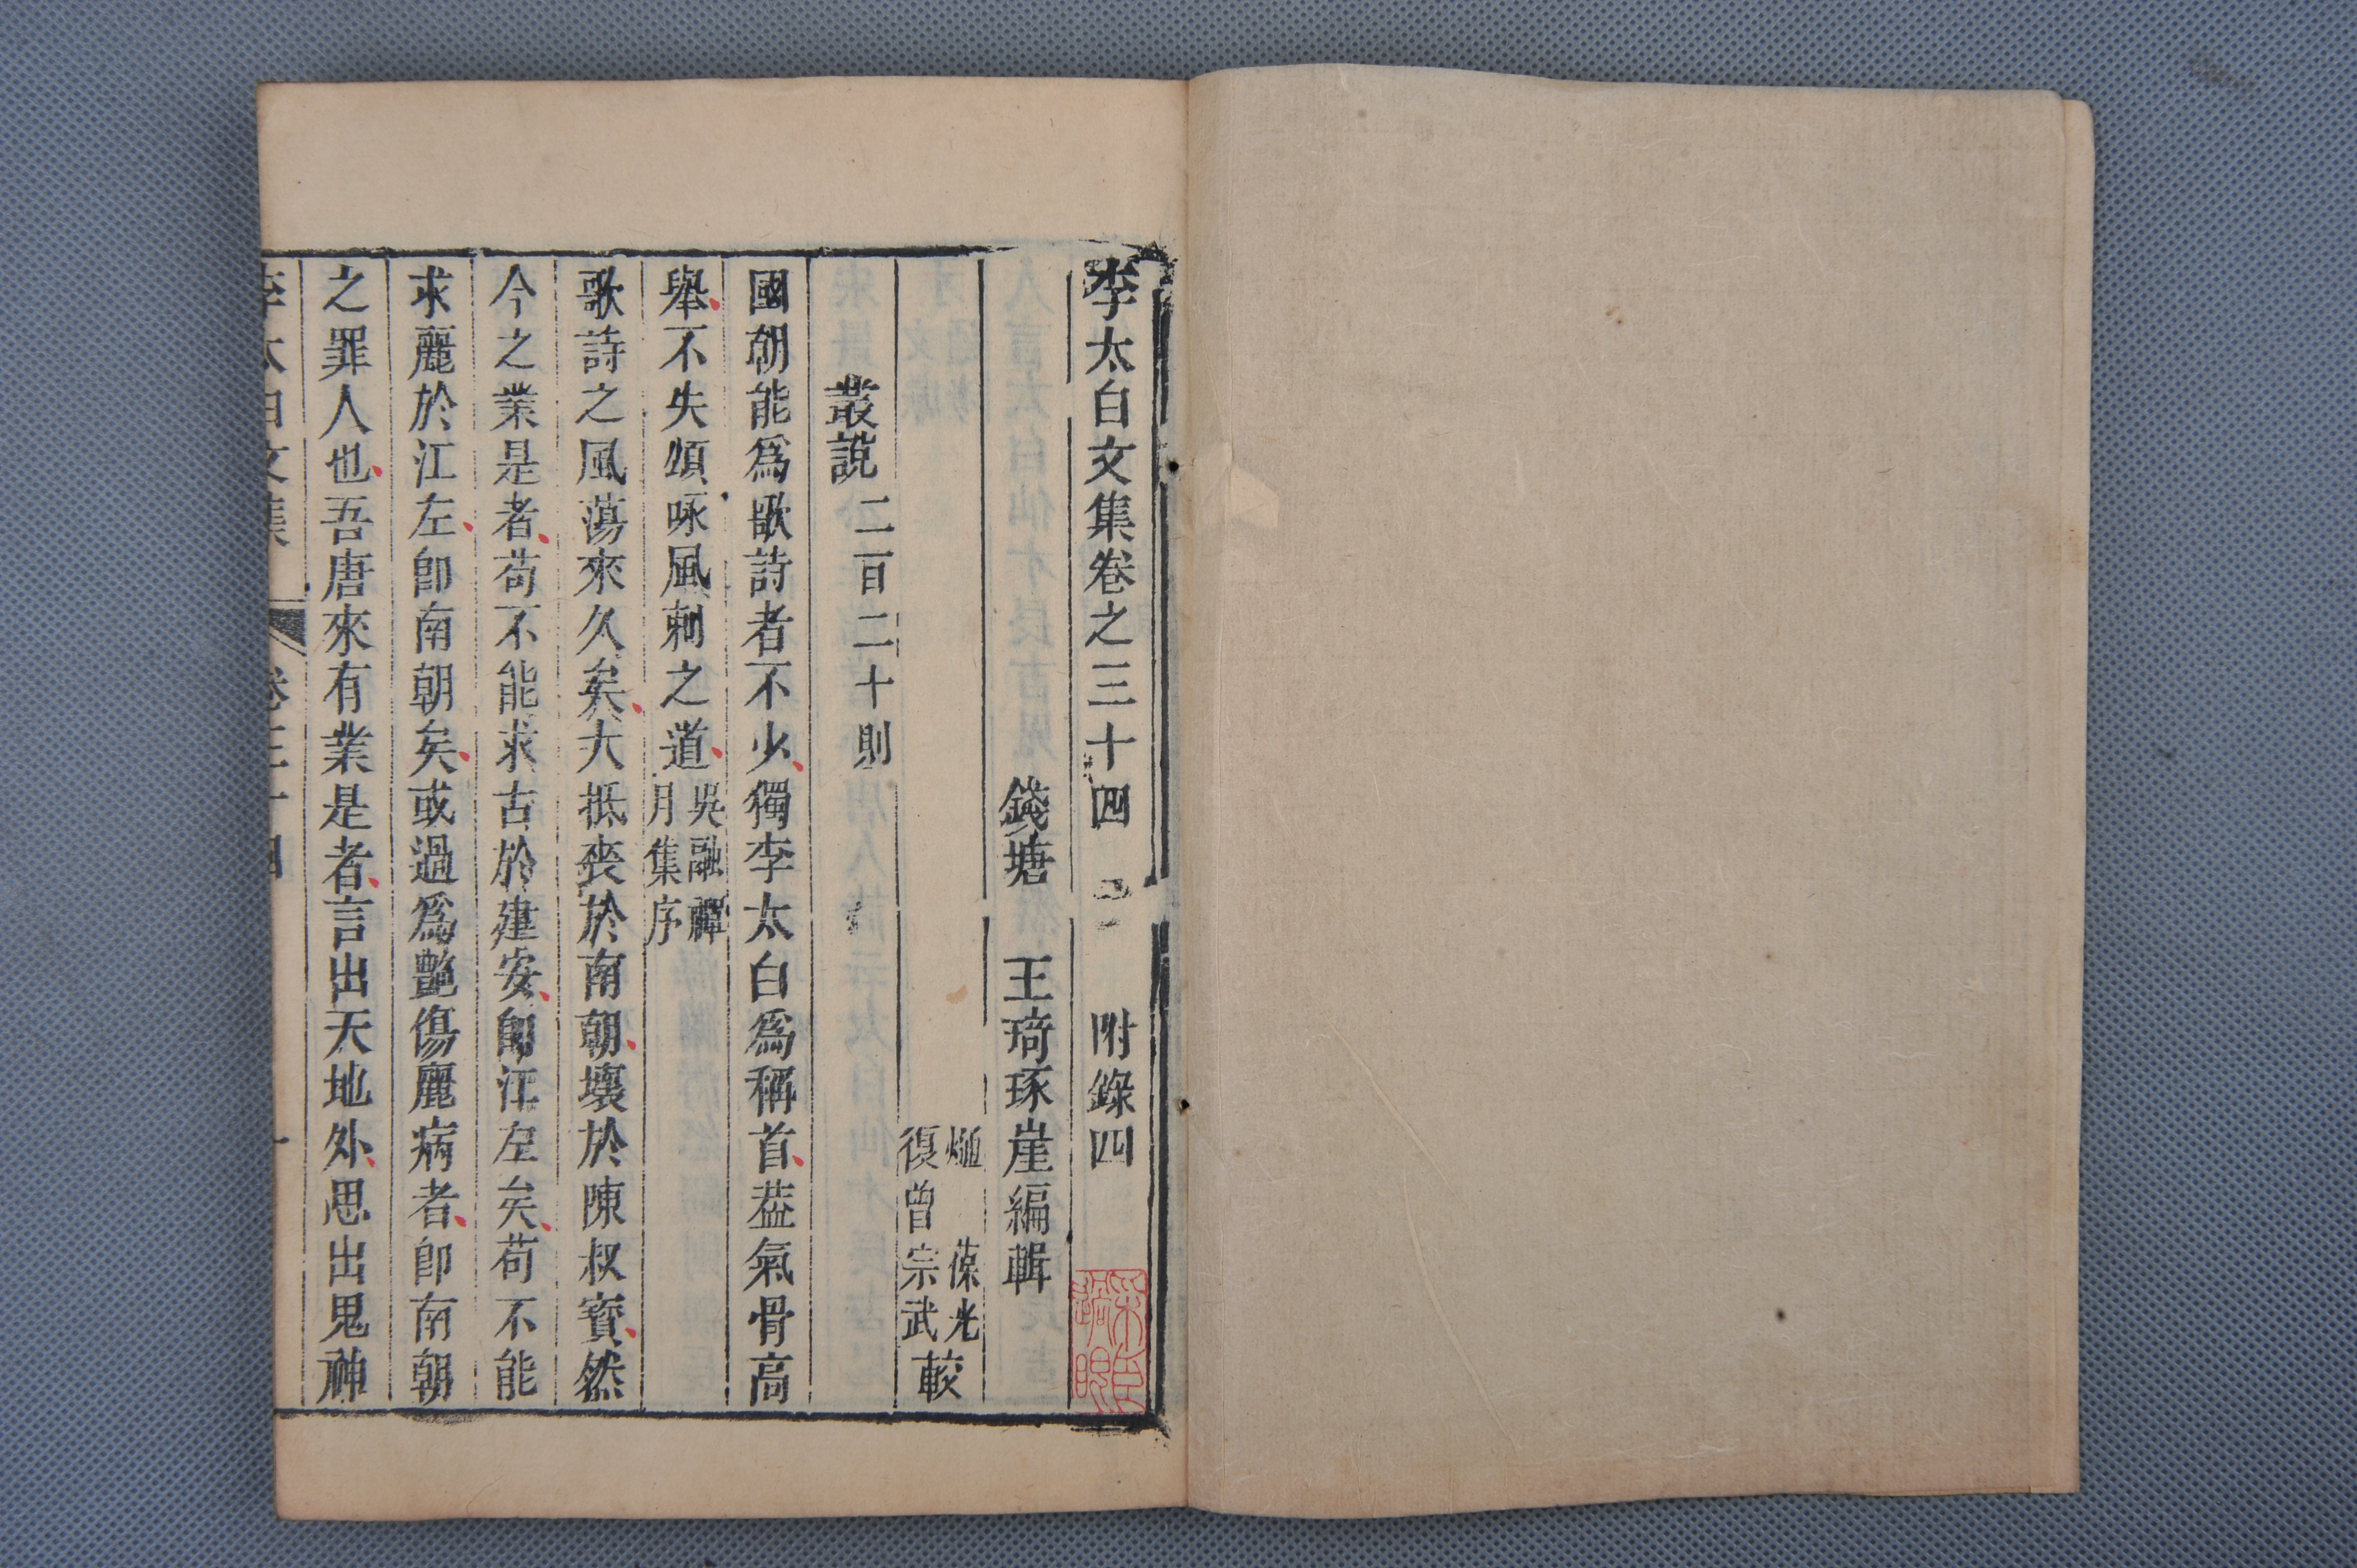 李太白文集卷之三十四　附錄四
錢塘　王琦琢崖編輯
葆光
復曾宗武較
叢說 二百二十則
國朝能爲歌詩者不少獨李太白爲稱首葢氣骨高
舉不失頌咏風刺之道
吳融禪
月集序
歌詩之風蕩來久矣大抵喪於南朝壞於陳叔寶然
今之業是者苟不能求古於建安卽江左矣苟不能
求麗於江左卽南朝矣或過爲艷傷麗病者卽南朝
之罪人也吾唐來有業是者言出天地外思出鬼神
李太白文集 卷三十四 一